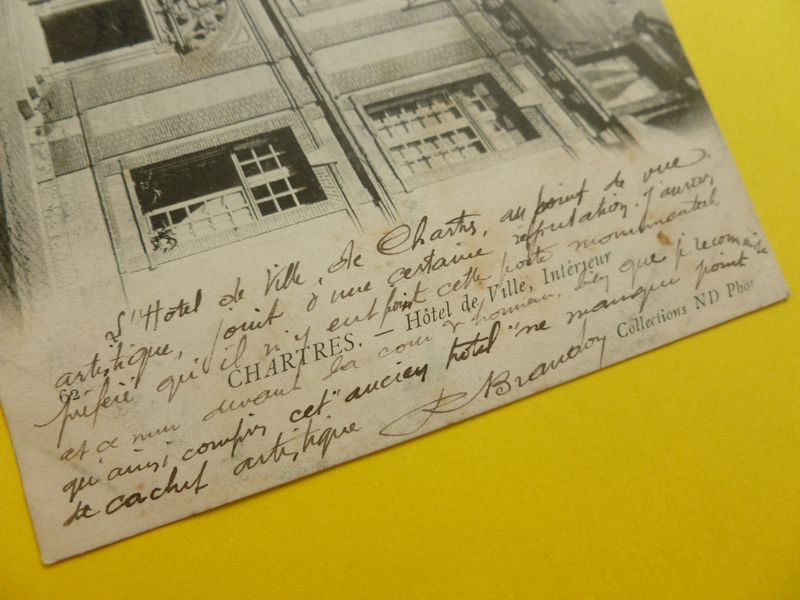 L'Hotel de Ville, de Chartres, au point de vue
artistique, jouit d'une certaine reputation. J'aurais
préféré qu'il n'y eut point cette porte monumentale
et ce mur devant la cour d'honneur, bien que je reconnaisse
qu'ainsi compris cet "ancien hotel" ne manque point
de cachet artistique
Brandon
62. CHARTRES. — Hôtel de Ville, Intérieur
Collections ND Phot